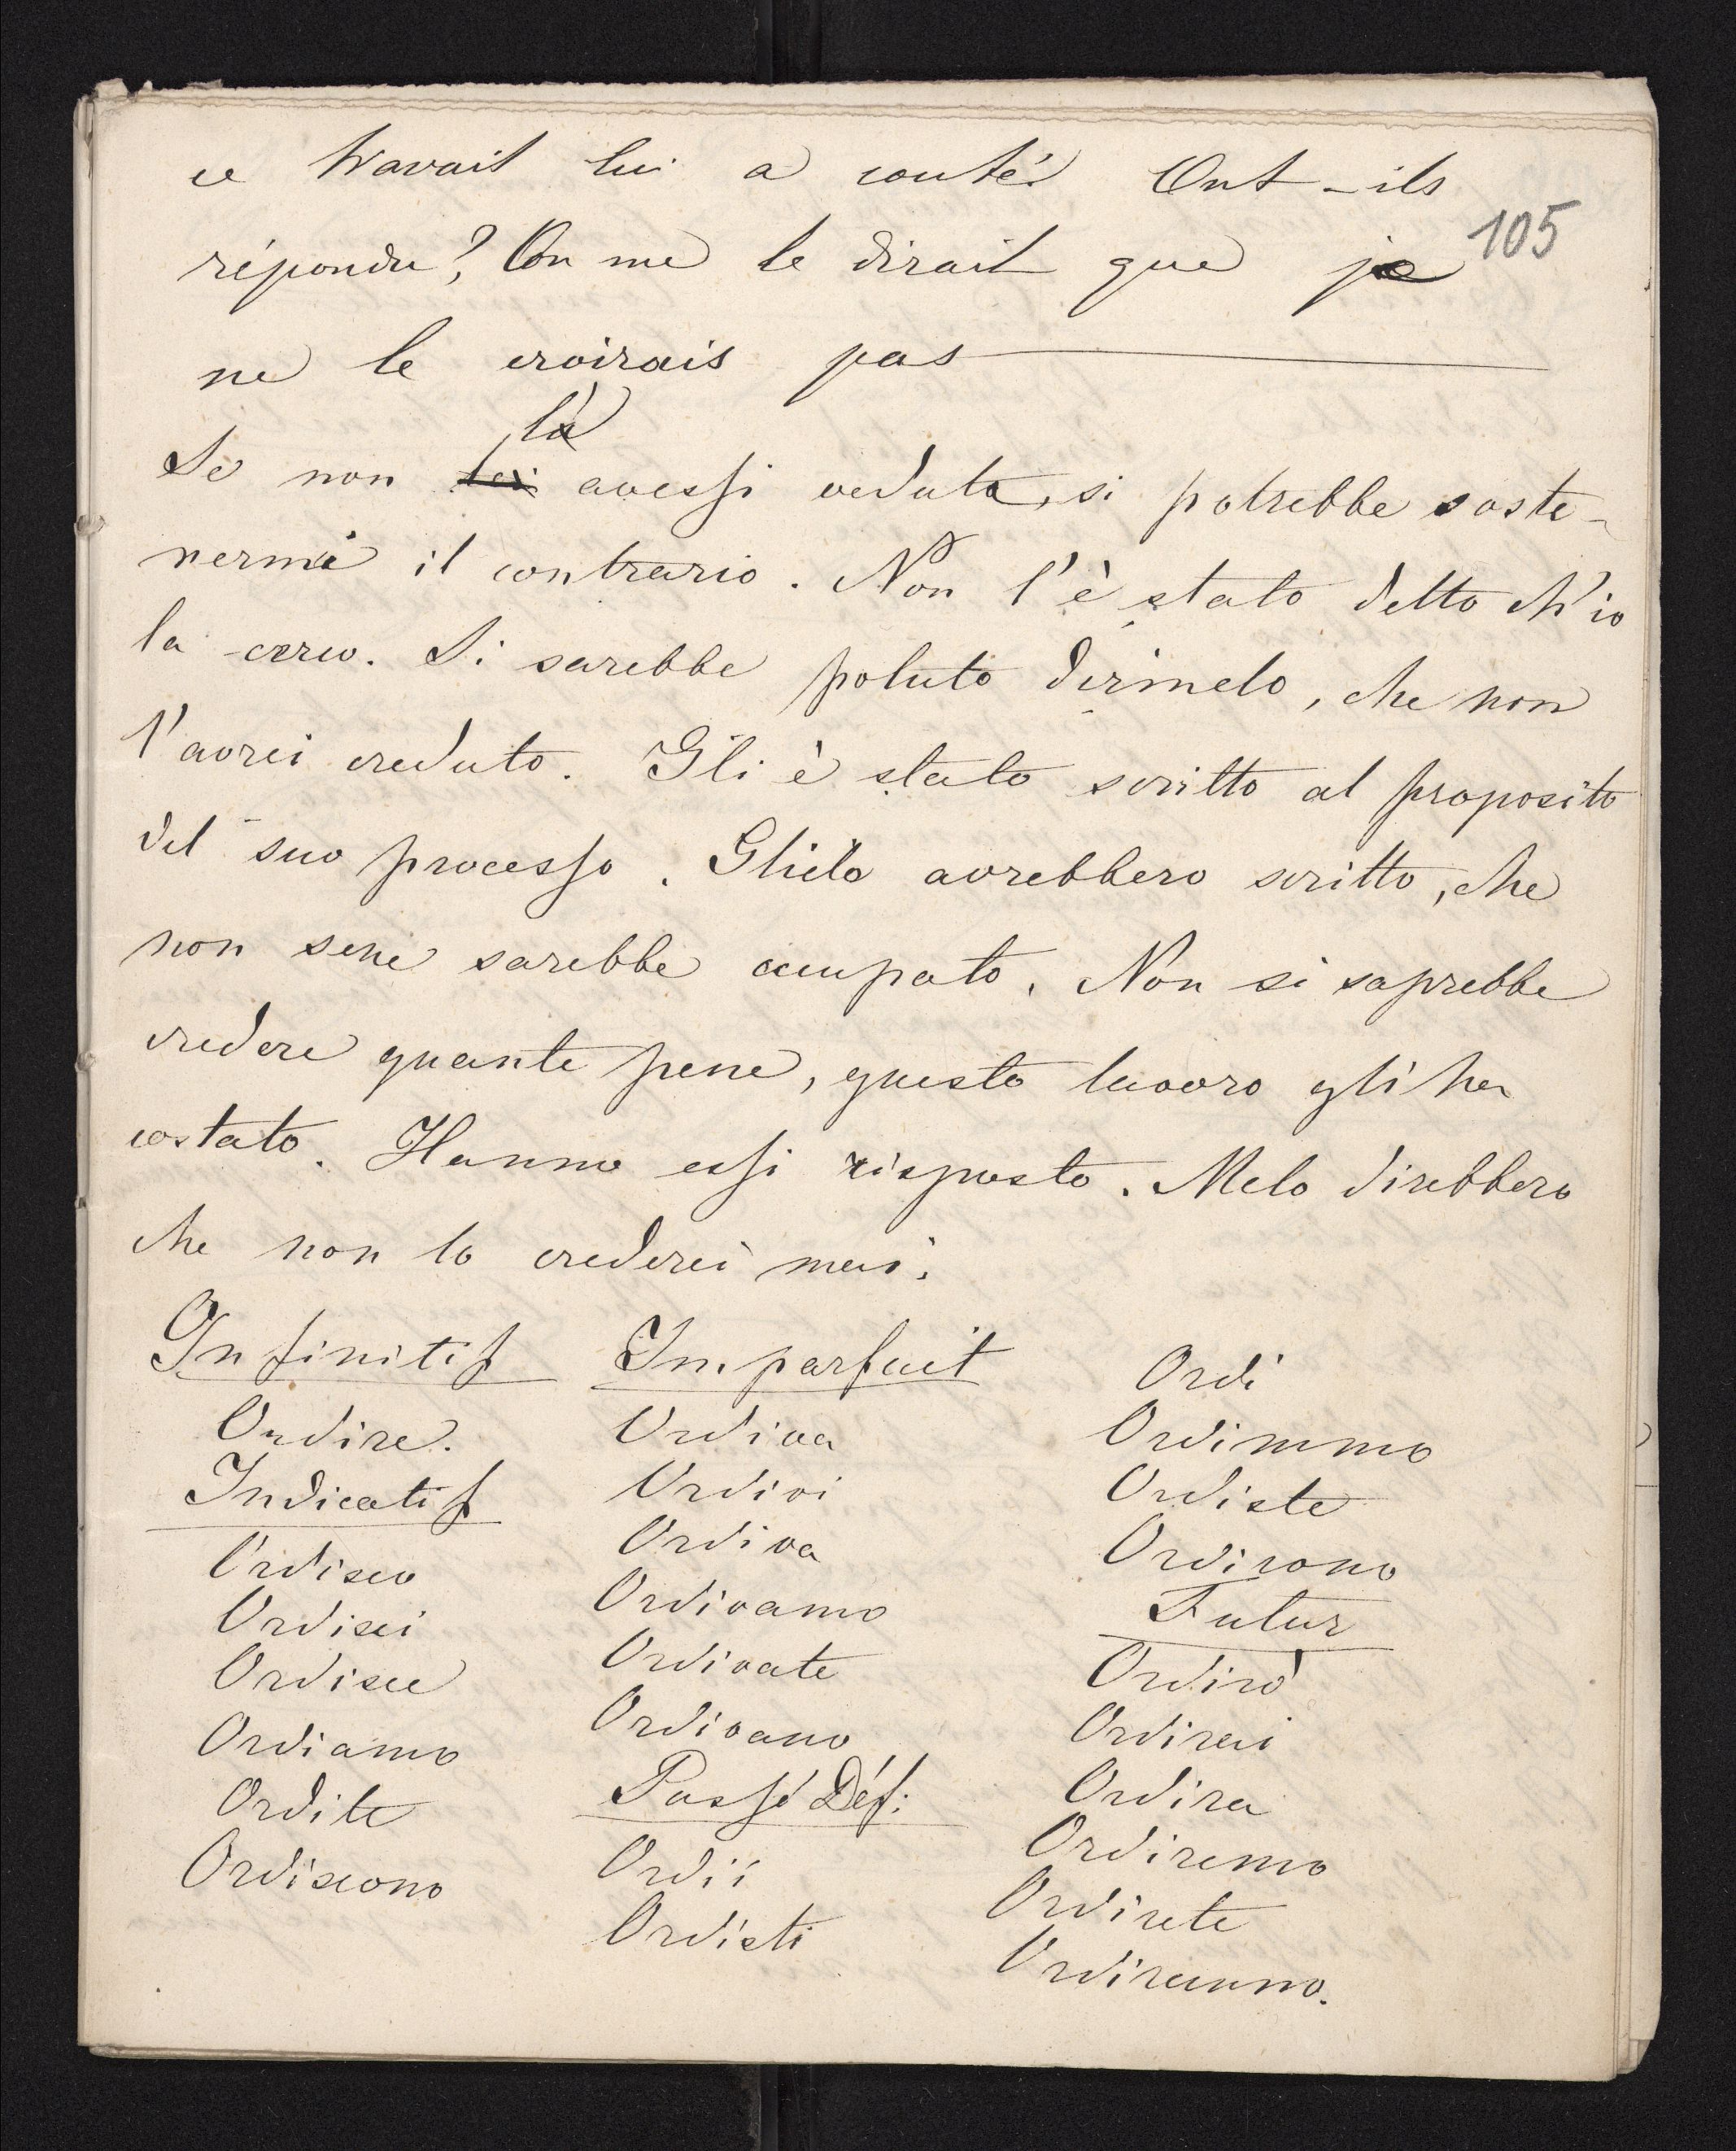 ce travail lui a couté. Ont-ils
105
répondu? On me le dirait que je
ne le croirais pas
là
Se non lei avessi veduta, si potrebbe soste-
nermi il contrario. Non l'è stato detto ch'io
la cerco. Si sarebbe potuto dirmelo, che non
l'avrei creduto. Gli è stato scritto al proposito
del suo processo. Glielo avrebbero scritto, che
non sene sarebbe occupato. Non si saprebbe
credere quante pene, questo lavoro gli ha
costato. Hanno essi risposto. Melo direbbero
che non lo crederei mai.
Infinitif
Ordire.
Indicatif
Ordisco
Ordisci
Ordisce
Ordiamo
Ordite
Ordiscono
Imparfait
Ordiva
Ordivi
Ordiva
Ordivamo
Ordivate
Ordivano
Passé Déf:
Ordii
Ordisti
Ordì
Ordimmo
Ordiste
Ordirono
Futur
Ordirò
Ordirai
Ordira
Ordiremo
Ordirete
Ordiranno.